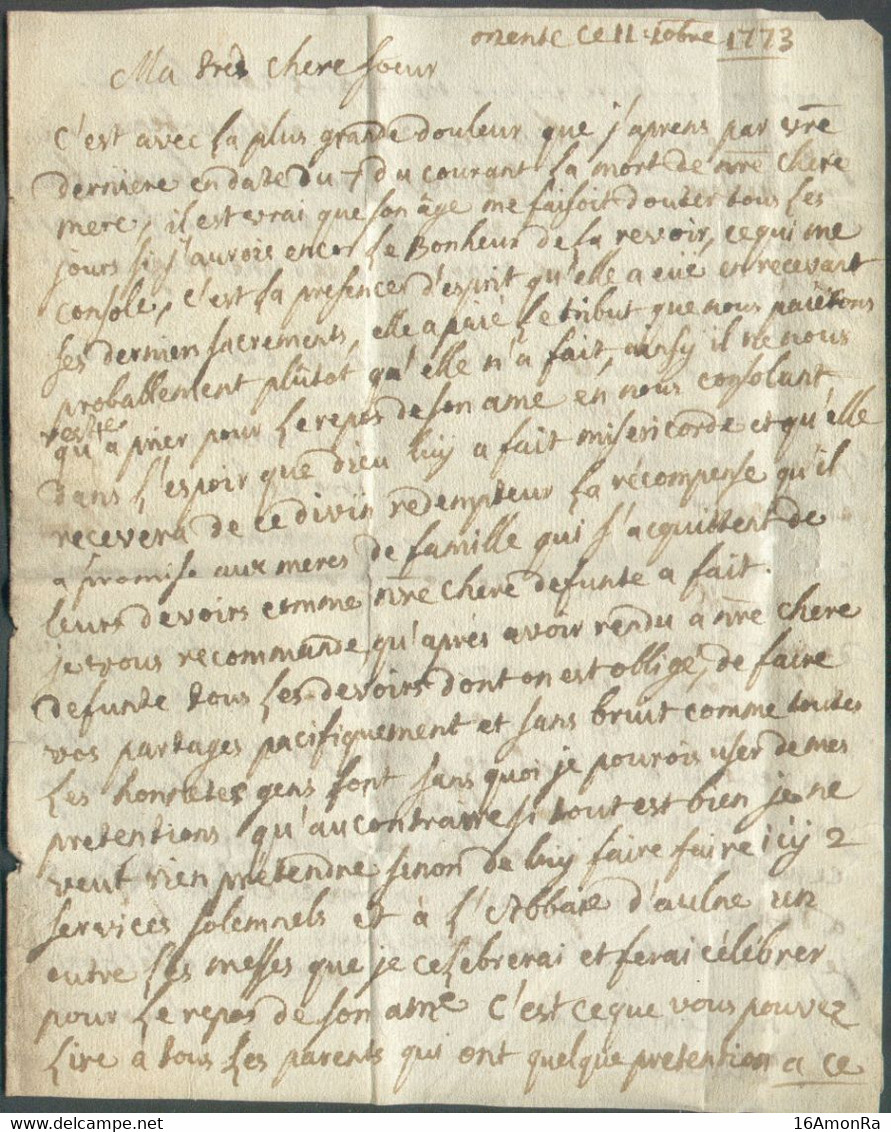 onente ce 11 xobre 1773
Ma tres chere soeur
C'est avec la plus grande douleur que j'aprens par vre
derniere en date du 7 du courant la mort de nre chere
mere, il est vrai que son âge me faisoit douter tous les
jours si j'aurois encor le Bonheur de la revoir, ce qui me
console, c'est la presence d'esprit qu'elle a eüe en recevant
ses derniers sacrements, elle a paié le tribut que nous païerons
proballement plûtot qu'elle n'a fait, ainsy il ne nous
reste
qu'a prier pour le repos de son ame en nous consolant
dans l'espoir que dieu luy a fait misericorde et qu'elle
recevera de ce divin redempteur la récompense qu'il
a promise aux meres de famille qui s'acquittent de
leurs devoirs comme nre chere defunte a fait.
je vous recommande, qu'aprés avoir rendu à nre chere
defunte tous les devoirs dont on est obligé, de faire
vos partages pacifiquement et sans bruit comme toutes
les honnetes gens font sans quoi je pourois user de mes
pretentions qu'au contraire si tout est bien je ne
veut rien pretendre sinon de luy faire faire icÿ 2
services solemnels et à l'Abbaïe d'aulne un
outre les messes que je celebrerai et ferai célébrer
pour le repos de son ame C'est ce que vous pouvez
lire à tous les parents qui ont quelque pretention a ce
16AmonRa